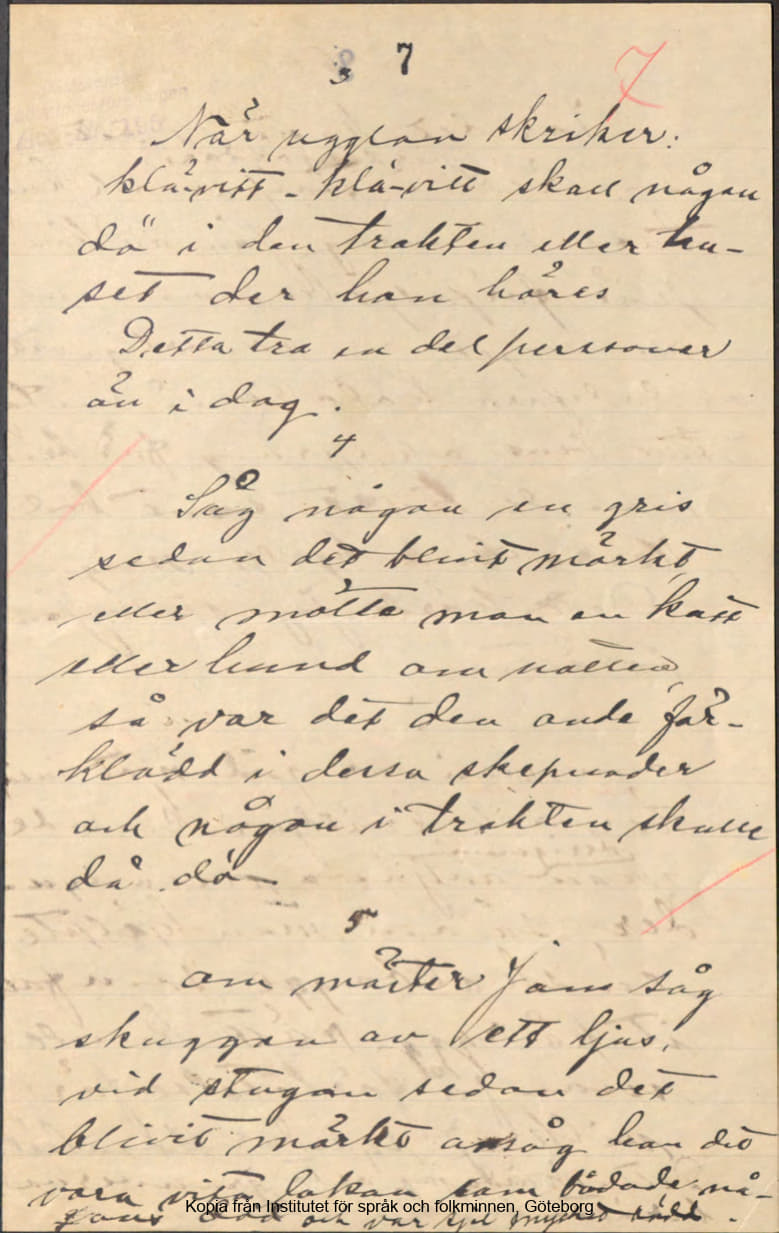 7
3
7
När ugglan skriker:
klä-vitt - klä-vitt skall någon
dö i den trakten eller hu-
set der han höres
Detta tro en del personer
än i dag.
4
Såg någon en gris
sedan det blivit mörkt
eller mötte man en katt
eller hund om natten
så var det den onde för-
klädd i dessa skepnader
och någon i trakten skulle
då dö
5
om mäster Jöns såg
skuggan av ett ljus,
vid stugan sedan det
blivit mörkt ansåg han det
vara vita lakan som bådade nå-
gons död och var sjel mycket rädd.
Kopia från Institutet för språk och folkminnen, Göteborg